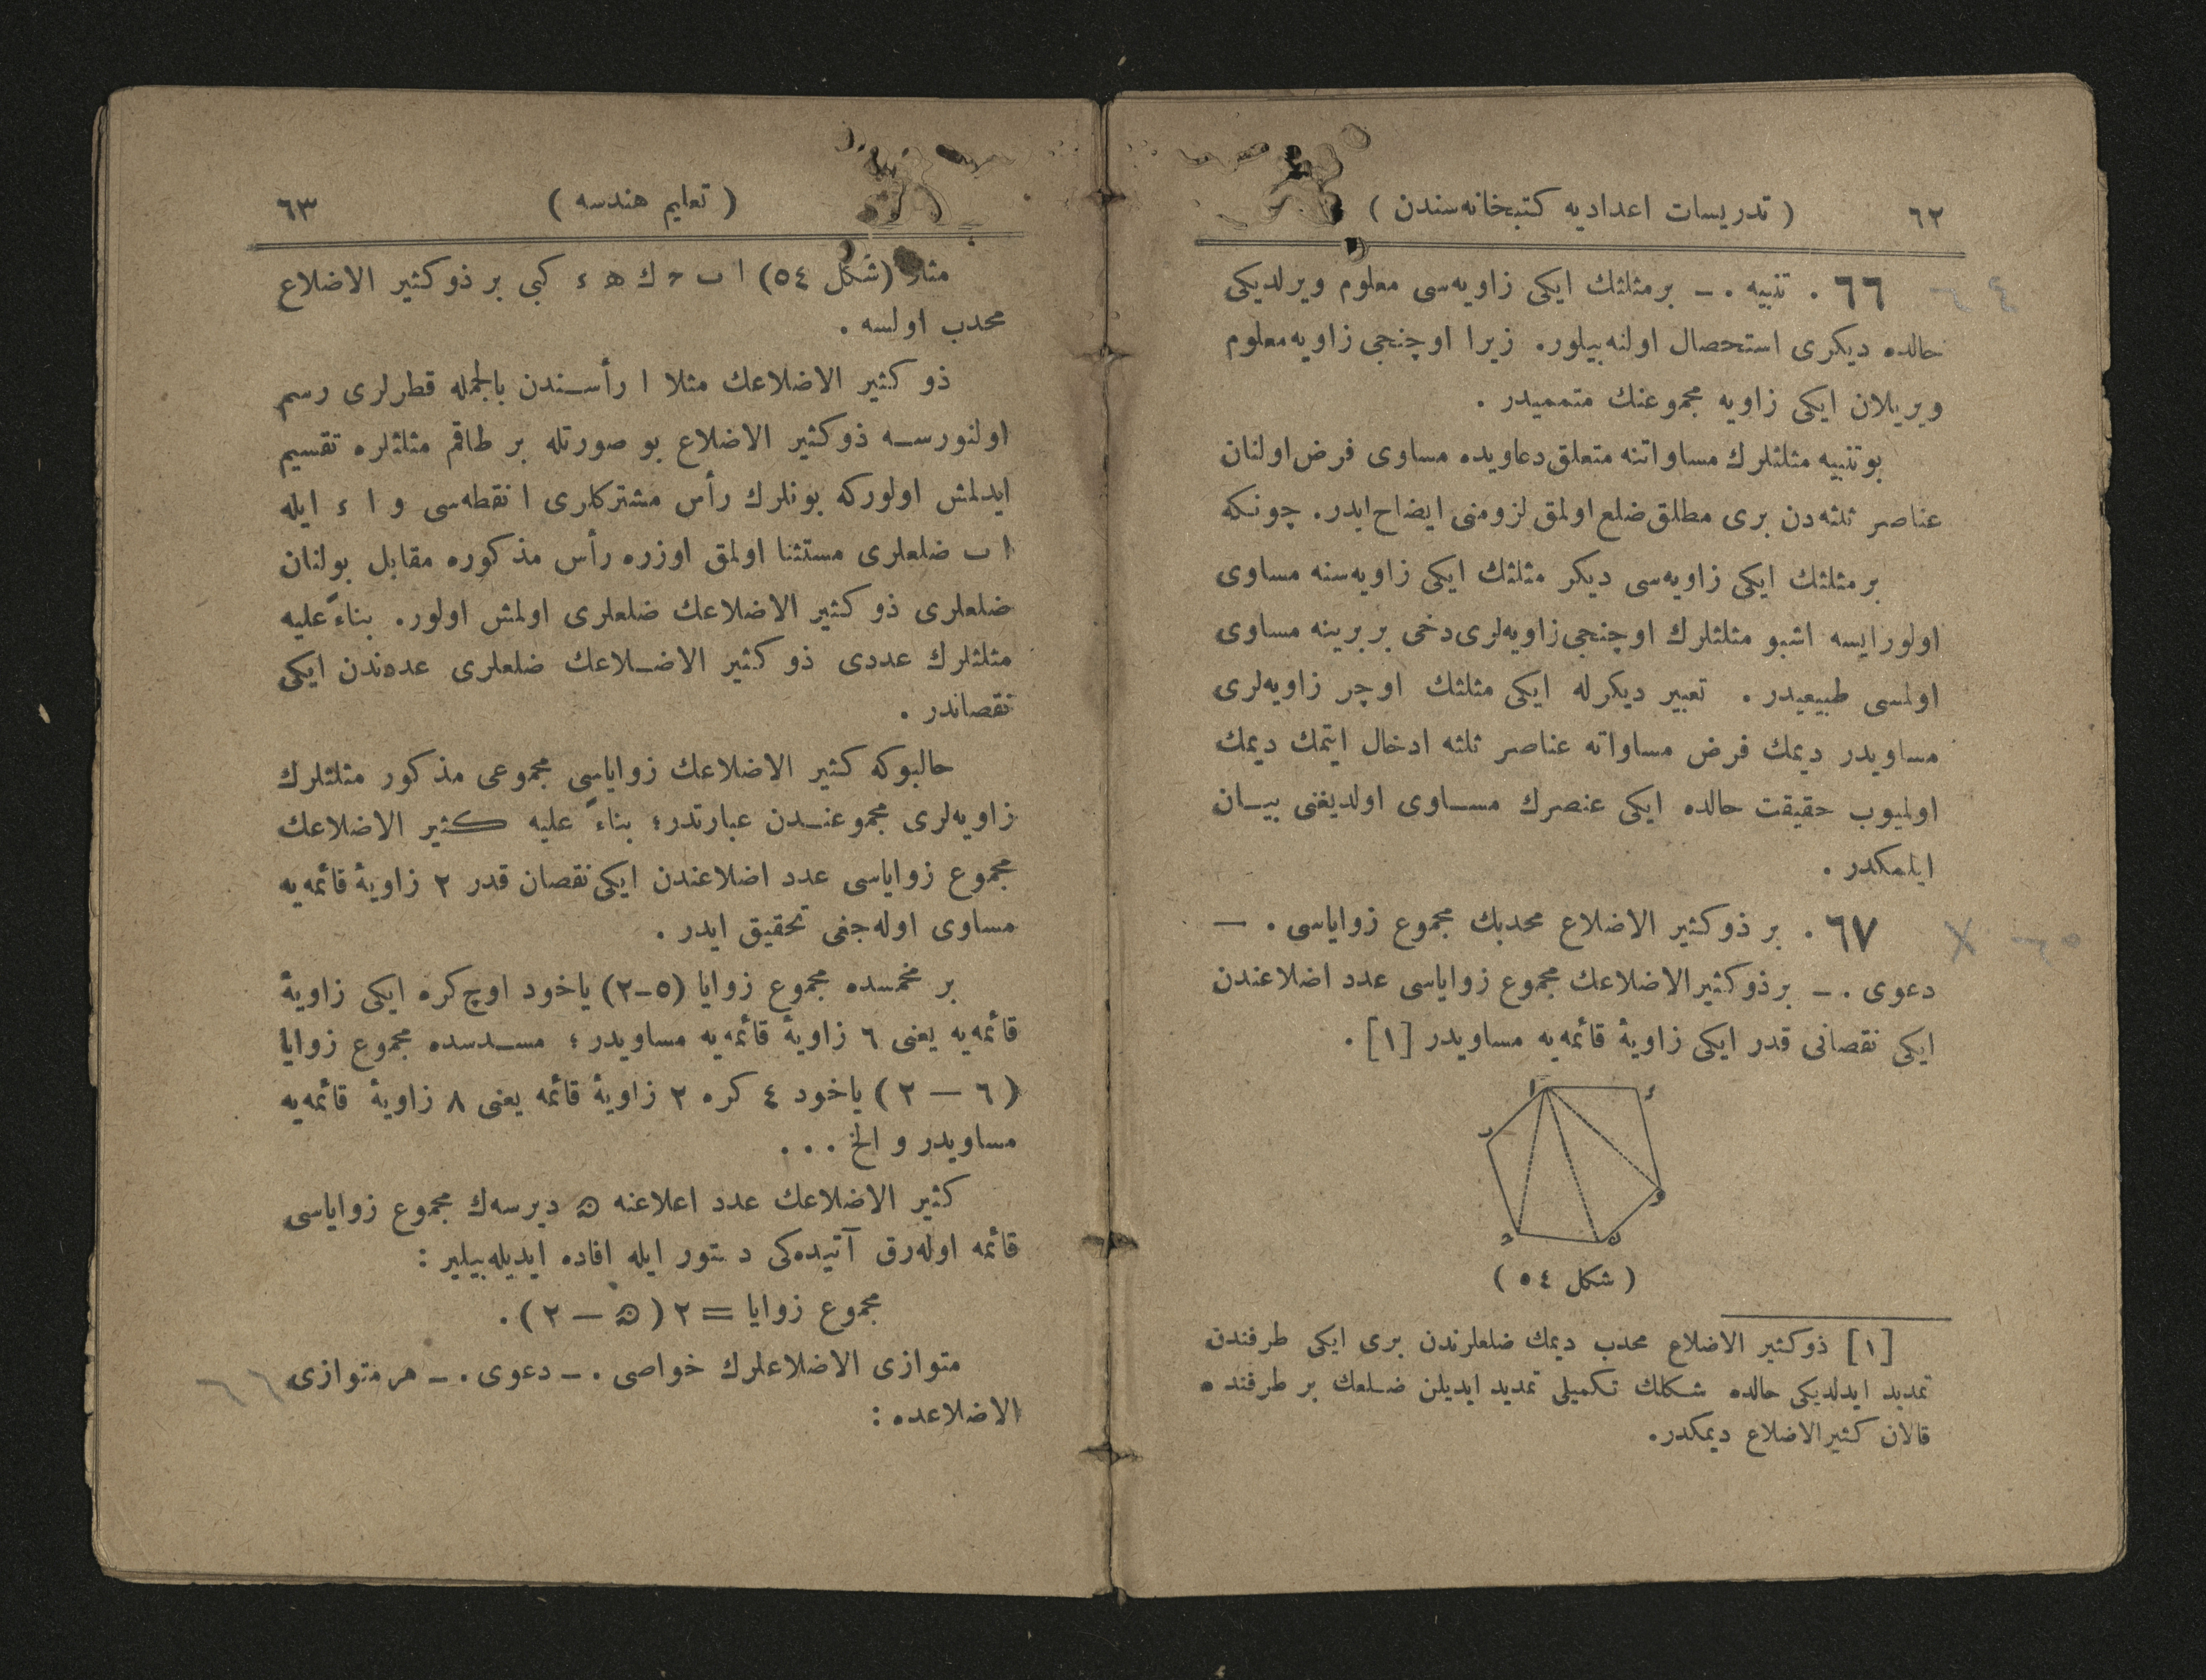 ٦٢
( تدريسات اعداديه كتبخانه‌سندن )
٦٦ . تنبيه . — بر مثلثك ايكى زاويه‌سى معلوم ويرلديكى
حالده ديكرى استحصال اولنه‌بيلور. زيرا اوچنجى زاويه معلوم
ويريلان ايكى زاويه مجموعنك متمميدر .
بو تنبيه مثلثلرك مساواتنه متعلق دعاويده مساوى فرض اولنان
عناصر ثلثه‌دن برى مطلق ضلع اولمق لزومنى ايضاح ايدر. چونكه
بر مثلثك ايكى زاويه‌سى ديكر مثلثك ايكى زاويه‌سنه مساوى
اولورايسه اشبو مثلثلرك اوچنجى زاويه‌لرى دخى بربرينه مساوى
اولمسى طبيعيدر . تعبير ديكرله ايكى مثلثك اوچر زاويه‌لرى
مساويدر ديمك فرض مساواته عناصر ثلثه ادخال ايتمك ديمك
اولميوب حقيقت حالده ايكى عنصرك مساوى اولديغنى بيان
ايلمكدر .
٦٧ . بر ذوكثير الاضلاع محدبك مجموع زواياسى . —
دعوى . — بر ذوكثير الاضلاعك مجموع زواياسى عدد اضلاعندن
ايكى نقصانى قدر ايكى زاويۀ قائمه‌يه مساويدر [١] .
ا
ء
ب
ه
ح
ك
( شكل ٥٤ )
[١] ذوكثير الاضلاع محدب ديمك ضلعلرندن برى ايكى طرفندن
تمديد ايدلديكى حالده شكلك تكميلى تمديد ايديلن ضلعك بر طرفنده
قالان كثير الاضلاع ديمكدر.
( تعليم هندسه )
٦٣
مثلا (شكل ٥٤) ا ب ح ك ه ء كبى بر ذوكثير الاضلاع
محدب اولسه .
ذو كثير الاضلاعك مثلا ا رأسندن بالجمله قطرلرى رسم
اولنورسه ذوكثير الاضلاع بو صورتله بر طاقم مثلثلره تقسيم
ايدلمش اولوركه بونلرك رأس مشتركلرى ا نقطه‌سى و ا ء ايله
ا ب ضلعلرى مستثنا اولمق اوزره رأس مذكوره مقابل بولنان
ضلعلرى ذو كثير الاضلاعك ضلعلرى اولمش اولور. بناءً عليه
مثلثلرك عددى ذو كثير الاضلاعك ضلعلرى عددندن ايكى
نقصاندر .
حالبوكه كثير الاضلاعك زواياسى مجموعى مذكور مثلثلرك
زاويه‌لرى مجموعندن عبارتدر؛ بناءً عليه كثير الاضلاعك
مجموع زواياسى عدد اضلاعندن ايكى نقصان قدر ٢ زاويۀ قائمه‌يه
مساوى اوله‌جغى تحقيق ايدر .
بر مخمسده مجموع زوايا (٥-٢) ياخود اوچ كره ايكى زاويۀ
قائمه‌يه يعنى ٦ زاويۀ قائمه‌يه مساويدر؛ مسدسده مجموع زوايا
( ٦ — ٢ ) ياخود ٤ كره ٢ زاويۀ قائمه يعنى ٨ زاويۀ قائمه‌يه
مساويدر و الخ . . .
كثير الاضلاعك عدد اعلاعنه ﻫ ديرسه‌ك مجموع زواياسى
قائمه اوله‌رق آتيده‌كى دستور ايله افاده ايديله‌بيلير :
مجموع زوايا = ٢ ( ﻫ — ٢ ) .
متوازى الاضلاعلرك خواصى . — دعوى . — هر متوازى
الاضلاعده :